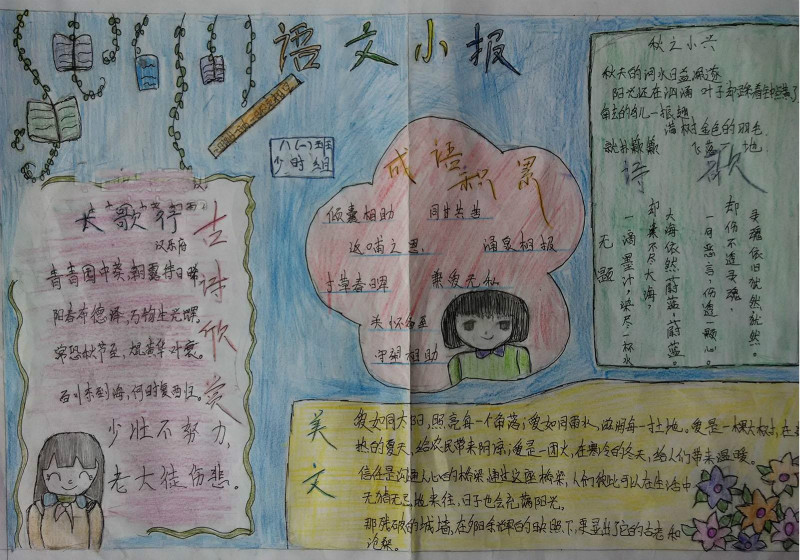 语文小报
八(一)班
少时组
长歌行
汉乐府
青青园中葵,朝露待日晞
阳春布德泽,万物生光辉。
常恐秋节至,焜黄华叶衰。
百川东到海,何时复西归。
少壮不努力,
老大徒伤悲。
古诗欣赏
成语积累
倾囊相助 同甘共苦
涌泉相报
寸草春晖
关怀备至
守望相助
秋之小兴
秋天的河水日益
满树金色的羽毛,
诗歌
灵魂依旧
却伤不透灵魂,
一句恶言,伤透一颗心。
大海依然蔚蓝,蔚蓝。
却染不尽大海,
一滴墨汁,染尽一杯水
无题
美文
爱如同太阳,照亮每一个角落;爱如同雨水,滋润每一寸土地。爱是一棵大树,在
热的夏天,给农民带来阴凉;爱是一团火,在寒冷的冬天,给人们带来温暖。
信任是沟通人心的桥梁,通过这座桥梁,人们彼此可以在生活中
无猜无忌地来往,日子也会充满阳光。
那残破的城墙,在夕阳余辉的映照下,更显出了它的古老和
沧桑。